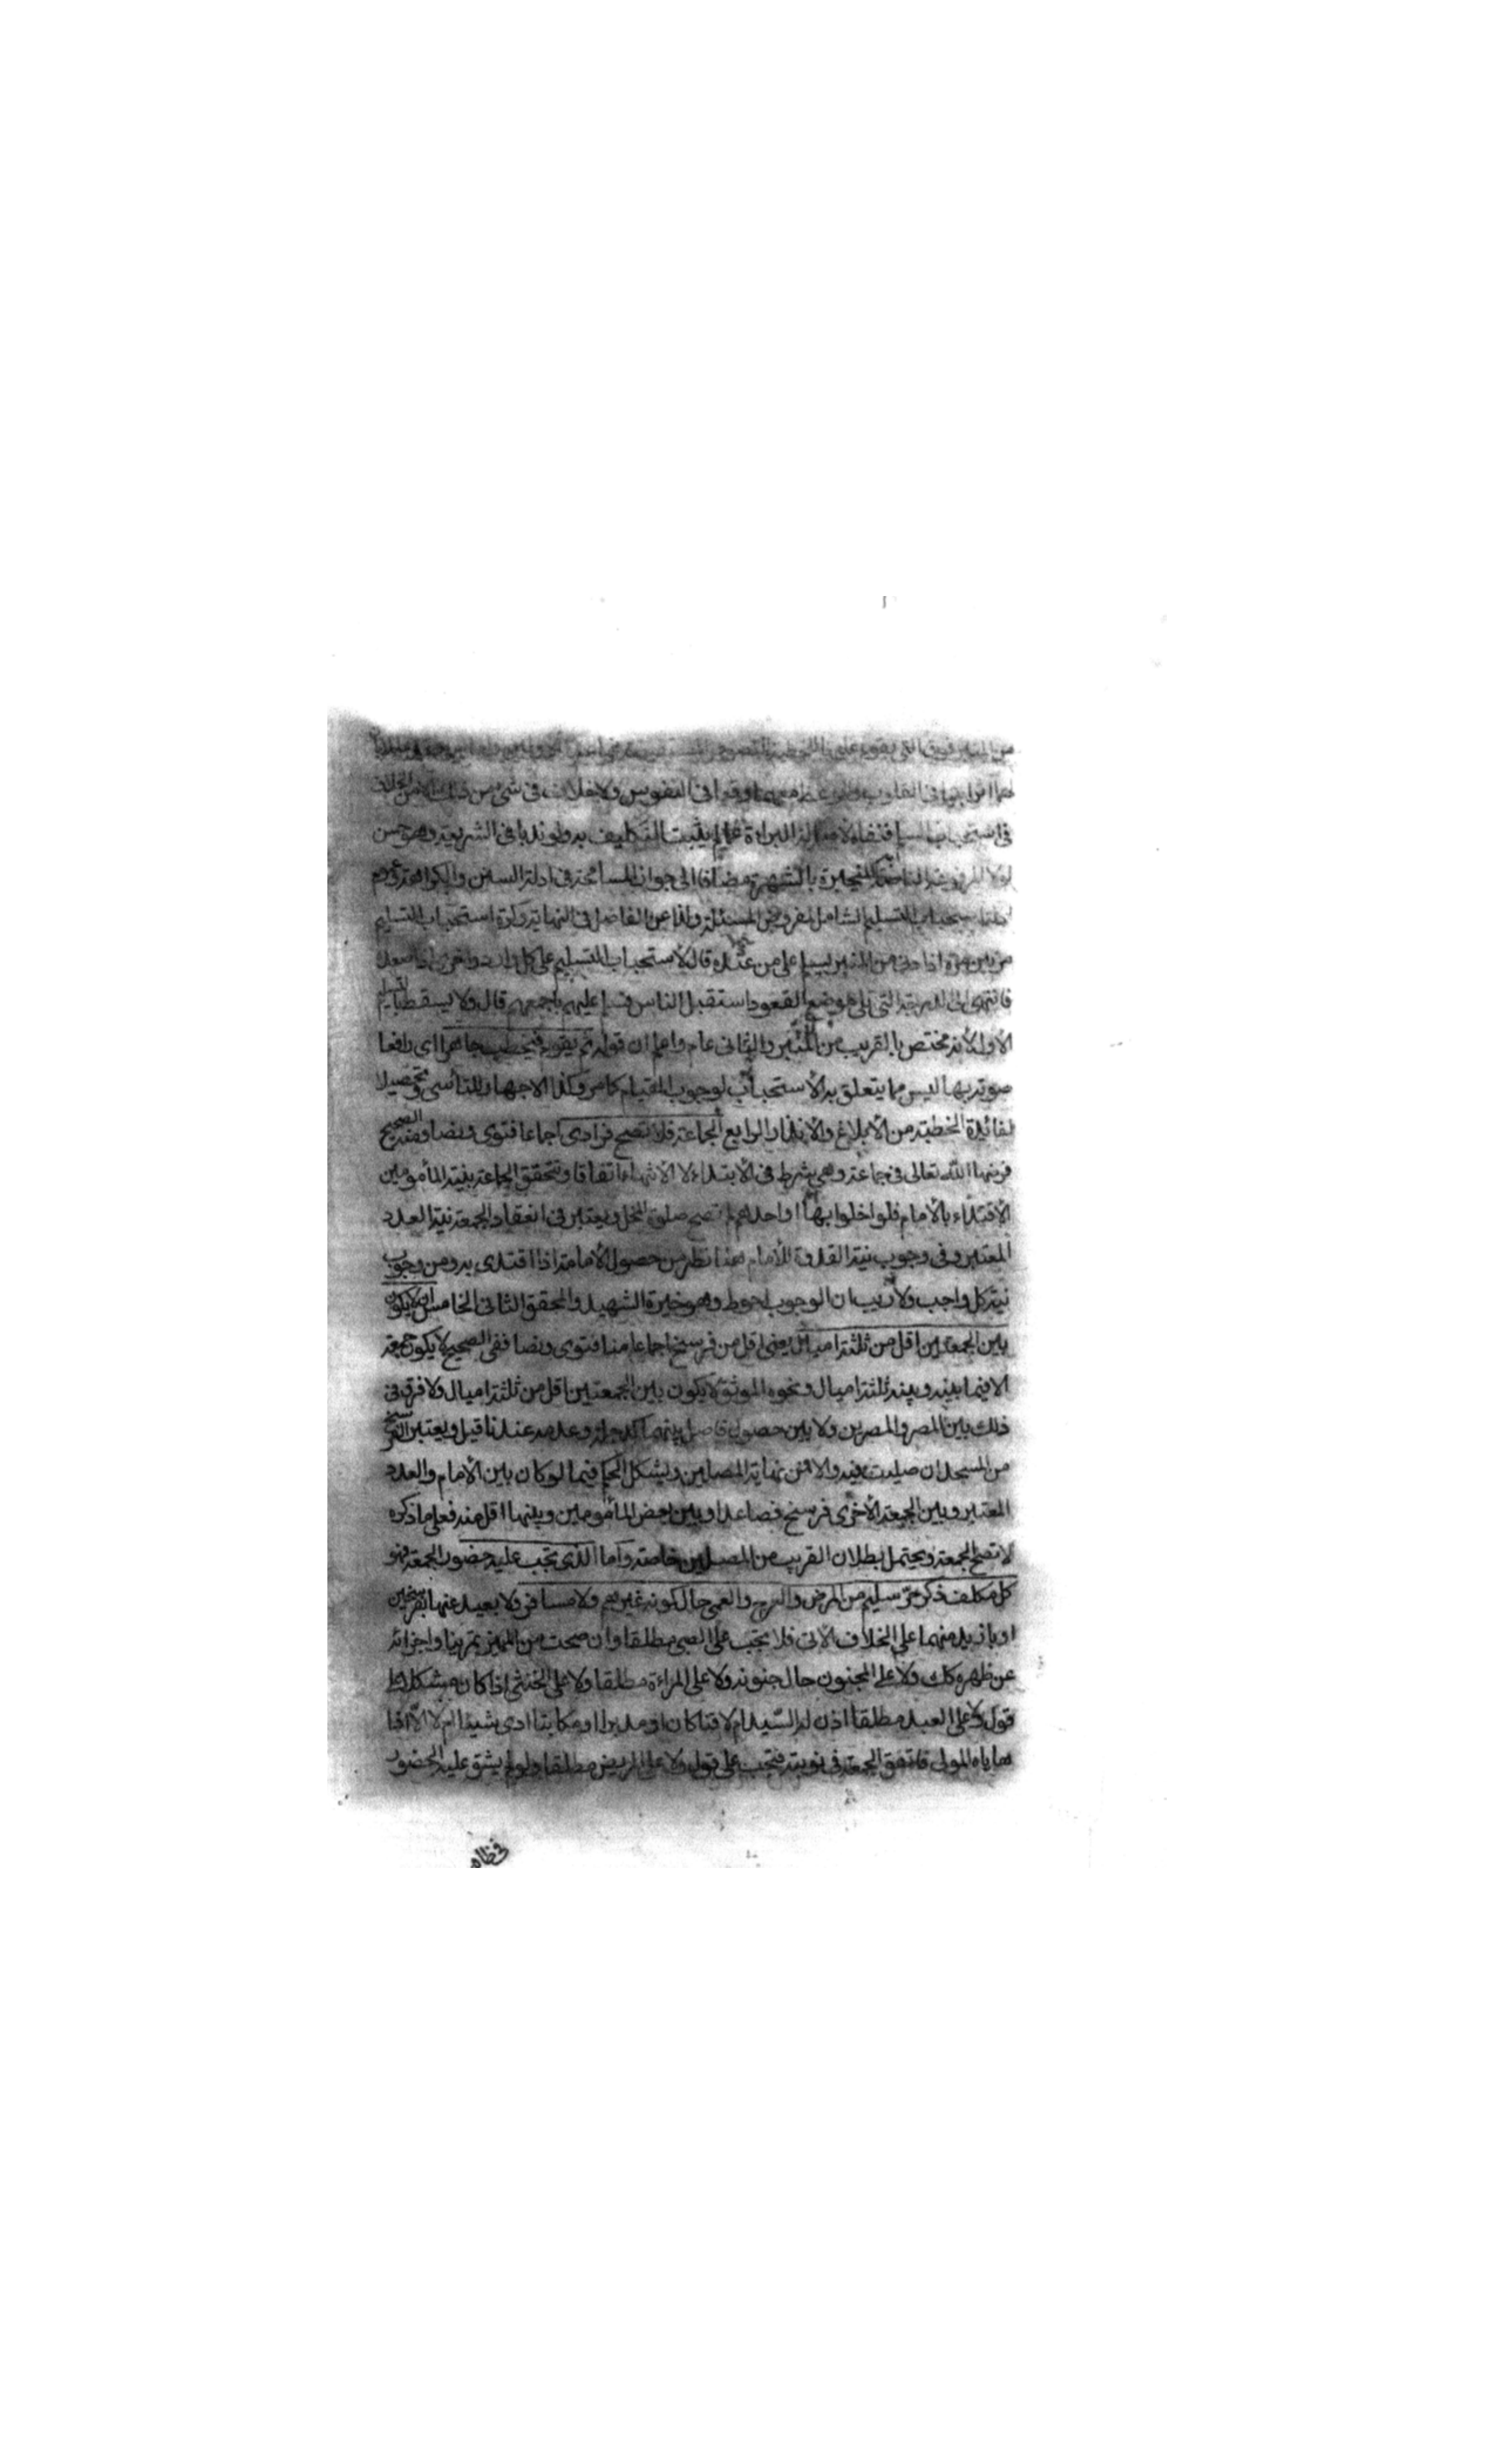 لهما اثرا بينا في القلوب وموعظتهما وقعا في النفوس ولا خلاف في شيء من ذلك الا من الخلاف
في استحباب السلام فنفاه لاصالة البراءة عما لم يثبت التكليف به وجوبا وندبا في الشريعة وهو حسن
لولا المرفوعة المنجبرة بالشهرة مضافا الى جواز المسامحة في ادلة السنن والكراهة وعموم
استحباب التسليم الشامل لمفروض المسئلة ولذا عن الفاضل في النهاية وكرة استحباب التسليم
مرتين مرة اذا دنى من المنبر يسلم على من عنده قال لاستحباب التسليم على كل وارد واخرى اذا صعد
فانتهى الى الدرجة التي تلي موضع القعود استقبل الناس فسلم عليهم باجمعهم قال ولا يسقط بالتسليم
الاول لانه مختص بالقريب من المنبر والثاني عام واعلم ان قوله ثم يقوم فيخطب جاهرا اي رافعا
صوته بها ليس مما يتعلق به الاستحباب لوجوب القيام كما مر وكذا الاجهار للتأسي وتحصيلا
لفائدة الخطبة من الابلاغ والانذار الرابع الجماعة فلا تصح فرادى اجماعا فتوى ونصا ومنه الصحيح
فرضها الله تعالى في جماعة وهي شرط في الابتداء لا الانتهاء اتفاقا وتتحقق الجماعة بنية المأمومين
الاقتداء بالامام فلو اخلوا بها او احدهم لم تصح صلوة المخل ويعتبر في انعقاد الجمعة نية العدد
المعتبر وفي وجوب نية القدوة للامام هنا نظر من حصول الامامة اذا اقتدى به ومن وجوب
نية كل واجب ولا ريب ان الوجوب احوط وهو خيرة الشهيد والمحقق الثاني الخامس ان لا يكون
بين الجمعتين اقل من ثلثة اميال يعني اقل من فرسخ اجماعا منا فتوى ونصا ففي الصحيح لا يكون جمعة
الا فيما بينه وبينه ثلثة اميال ونحوه الموثق لا يكون بين الجمعتين اقل من ثلثة اميال ولا فرق في
ذلك بين المصر والمصرين ولا بين حصول فاصل بينهما كدجلة وعدمه عندنا قيل ويعتبر الفرسخ
من المسجد ان صليت فيه والا فمن نهاية المصلين ويشكل الحكم فيما لو كان بين الامام والعدد
المعتبر وبين الجمعة الاخرى فرسخ فصاعدا وبين بعض المأمومين وبينها اقل منه فعلى ما ذكره
لا تصح الجمعة ويحتمل بطلان القريب من المصلين خاصة واما الذي تجب عليه حضور الجمعة فهو
كل مكلف ذكر حر سليم من المرض والعرج والعمى حال كونه غير هم ولا مسافر ولا بعيد عنها بفرسخين
او بازيد منهما على الخلاف الاتي فلا تجب على الصبي مطلقا وان صحت من المميز تمرينا واجزائه
عن ظهره كك ولا على المجنون حال جنونه ولا على المراءة مطلقا ولا على الخنثى اذا كان مشكلا على
قول ولا على العبد مطلقا اذن له السيد ام لا قنا كان او مدبرا او مكاتبا ادى شيئا ام لا الا اذا
هاياه المولى فاتفق الجمعة في نوبته فتجب على قول ولا على المريض مطلقا ولو لم يشق عليه الحضور